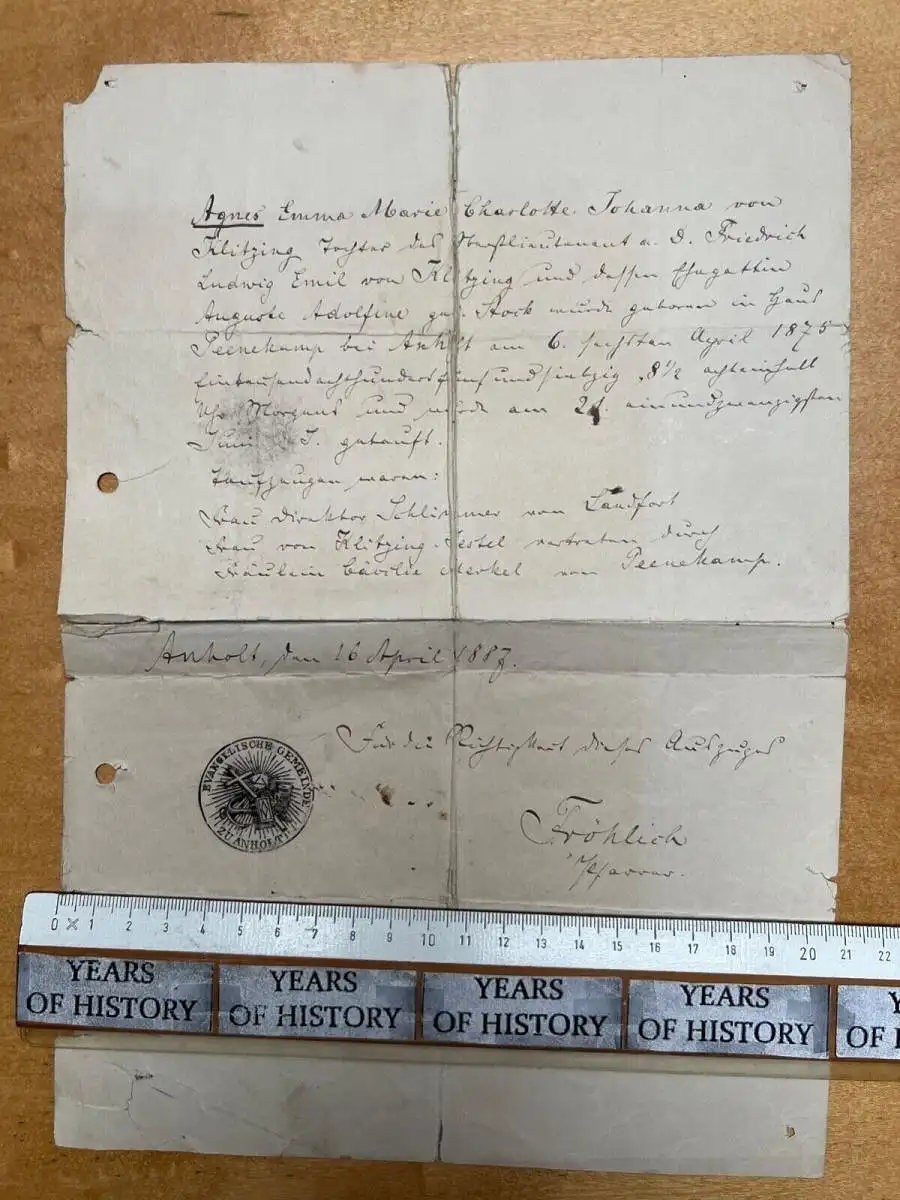 Agnes Emma Marie Charlotte Johanna von
Klitzing Tochter des Oberstlieutenant a. D. Friedrich
Ludwig Emil von Klitzing und dessen Ehegattin
Auguste Adolfine geb. Stock wurde geboren in Haus
Peenekamp bei Anholt am 6. sechsten April 1875
Eintausendachthundertfünfundsiebzig, 8½ achteinhalb
Uhr Morgens und wurde am 21. einundzwanzigsten
Juni J. getauft.
Taufzeugen waren:
Frau Direktor von Landfort
Frau von Klitzing vertreten durch
Fräulein Cäcilie Merkel von Peenekamp.
Anholt, den 16 April 1887.
Für die Richtigkeit dieses Auszuges
Fröhlich
Pfarrer.
EVANGELISCHE GEMEINDE
ZU ANHOLT
0 1 2 3 4 5 6 7 8 9 10 11 12 13 14 15 16 17 18 19 20 21 22
YEARS OF HISTORY YEARS OF HISTORY YEARS OF HISTORY YEARS OF HISTORY Y OF